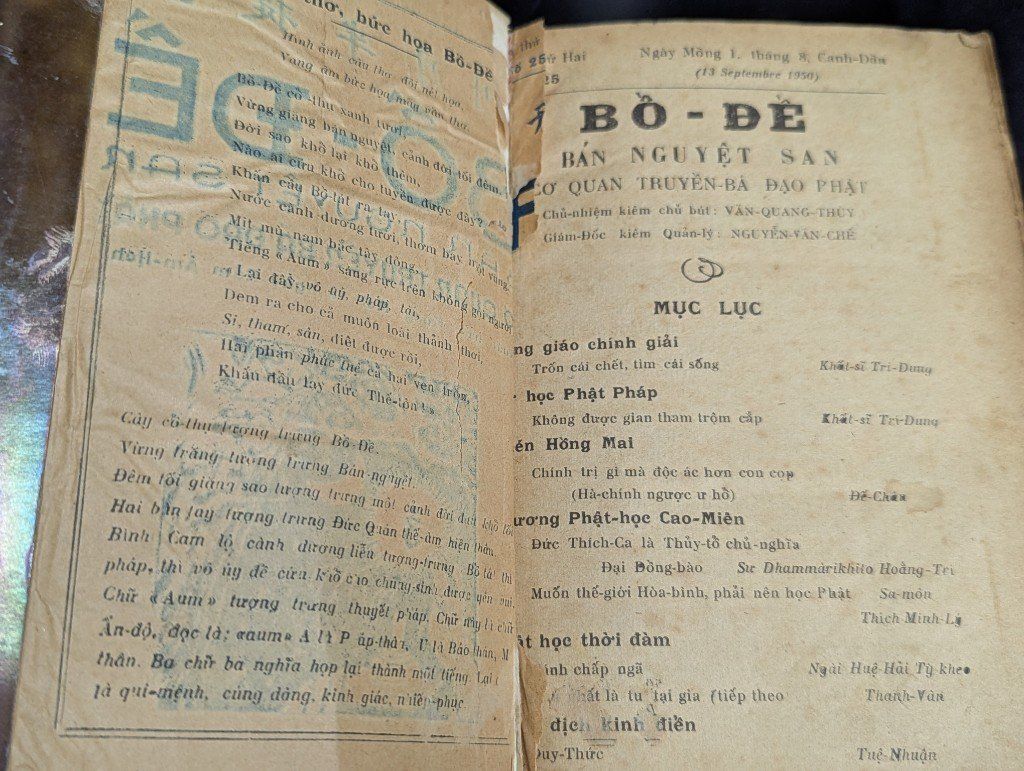 thơ, bức họa Bồ-Đề
Hình ảnh câu thơ đôi nét họa,
Vang âm bức họa mấy vần thơ.
Bồ-Đề cổ-thụ xanh tươi,
Vừng giăng bán nguyệt, cảnh đời tối đêm.
Đời sao khổ lại khổ thêm,
Nào ai cứu khổ cho tuyền được đây?
Khấn cầu Bồ-tát ra tay,
Nước cành dương tưới, thơm bay
Mịt mù nam bắc tây đông,
Tiếng «Aum» sáng rực trên không gọi người
Lại đây, vô úy, pháp, tài,
Đem ra cho cả muôn loài thảnh thơi,
Si, tham, sân, diệt được rồi,
Hai phần phúc tuệ cả hai vẹn tròn,
Khấu đầu lạy đức Thế-tôn
Cây cổ-thụ tượng trưng Bồ-Đề.
Vừng trăng tượng trưng Bán-nguyệt.
Đêm tối giăng sao tượng trưng một cảnh đời đau khổ
Hai bàn tay tượng trưng Đức Quán thế-âm hiện thân.
Bình Cam lộ cành dương liễu tượng-trưng Bồ tát thí
pháp, thí vô úy để cứu khổ cho chúng-sinh được yên vui.
Chữ «Aum» tượng trưng thuyết pháp. Chữ này là chữ
Ấn-độ, đọc là: «aum» A là Pháp-thân, U là Báo thân, M
thân. Ba chữ ba nghĩa họp lại thành một tiếng. Lại
là qui-mệnh, cúng dàng, kinh giác, nhiếp-phục.
thứ Hai
Số 25
25
Ngày Mồng 1, tháng 8, Canh-Dần
(13 Septembre 1950)
BỒ-ĐỀ
BÁN NGUYỆT SAN
CƠ QUAN TRUYỀN-BÁ ĐẠO PHẬT
Chủ-nhiệm kiêm chủ bút: VĂN-QUANG-THÙY
Giám-Đốc kiêm Quản-lý: NGUYỄN-VĂN-CHẾ
MỤC LỤC
ng giáo chính giải
Trốn cái chết, tìm cái sống Khất-sĩ Trí-Dung
học Phật Pháp
Không được gian tham trộm cắp Khất-sĩ Trí-Dung
én Hồng Mai
Chính trị gì mà độc ác hơn con cọp
(Hà-chính ngược ư hổ) Đề-Chân
ương Phật-học Cao-Miên
Đức Thích-Ca là Thủy-tổ chủ-nghĩa
Đại Đồng-bào Sư Dhammarikhito Hoằng-Trí
Muốn thế-giới Hòa-bình, phải nên học Phật Sa-môn
Thích Minh-Lý
ật học thời đàm
ính chấp ngã Ngài Huệ-Hải Tỳ-kheo
hất là tu tại gia (tiếp theo Thanh-Vân
dịch kinh điển
Duy-Thức Tuệ-Nhuận